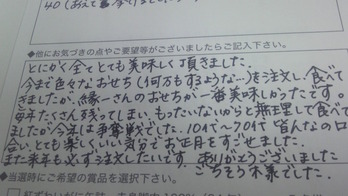 40 (あえて
●他にお気づきの点やご要望等がございましたらご記入下さい。
とにかく全てとても美味しく頂きました。
今まで色々なおせち(何万もするような…)を注文し、食べて
きましたが、縁一さんのおせちが一番美味しかったです。
毎年たくさん残ってしまい、もったいないからと無理して食べて
ましたが今年は争奪戦でした。10代~70代皆んなの口に
合い、とても楽しいいい気分でお正月をすごせました。
また来年も必ず注文したいです。ありがとうございました
ごちそう様でした。
●当選時にご希望の賞品を選択下さい。